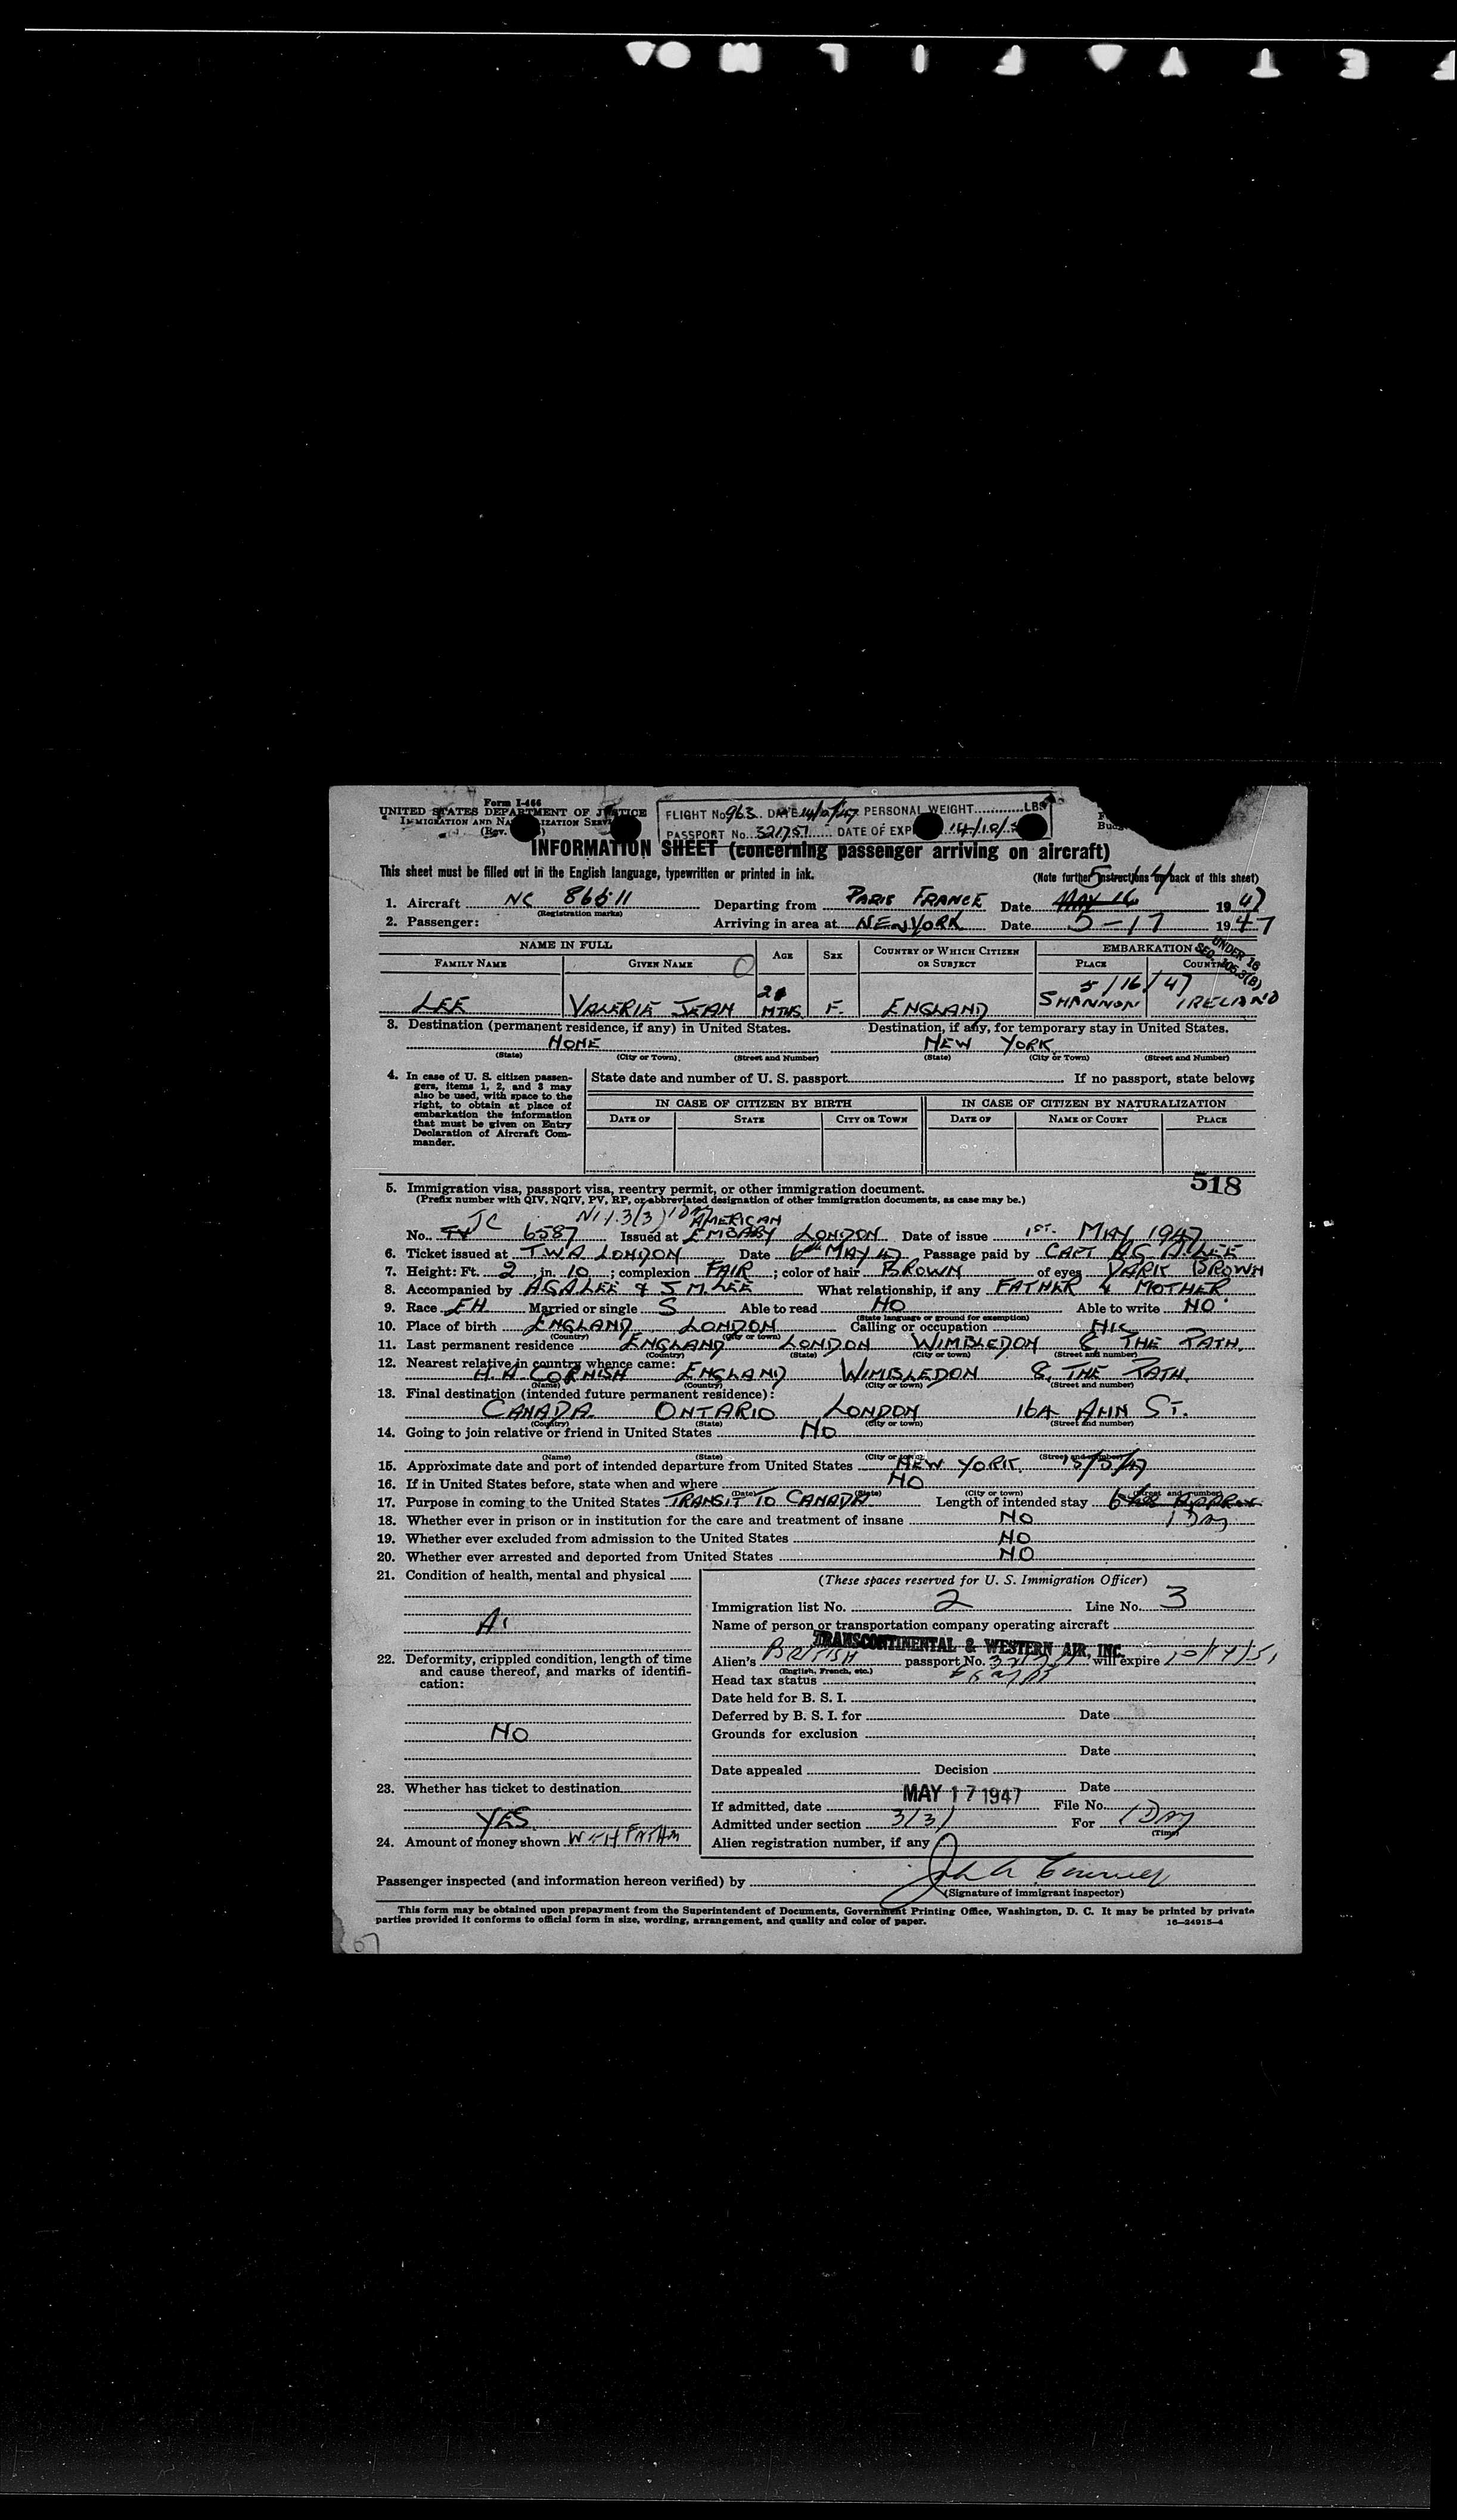 Form I-466
UNITED STATES DEPARTMENT OF JUSTICE
IMMIGRATION AND NATURALIZATION SERVICE
(Rev.
FLIGHT No. 963 DATE PERSONAL WEIGHT LBS
PASSPORT No. 321751 DATE OF EXP 14/10/
INFORMATION SHEET (concerning passenger arriving on aircraft)
This sheet must be filled out in the English language, typewritten or printed in ink.
(Note further instructions on back of this sheet)
1. Aircraft NC 86511 Departing from PARIS FRANCE Date MAY 16 1947
(Registration marks)
2. Passenger: Arriving in area at NEW YORK Date 5-17 1947
NAME IN FULL AGE SEX COUNTRY OF WHICH CITIZEN OR SUBJECT EMBARKATION
UNDER 16 SEC. 105.3(B)
FAMILY NAME GIVEN NAME PLACE COUNTRY
5/16/47
LEE VALERIE JEAN MTHS. F. ENGLAND SHANNON IRELAND
3. Destination (permanent residence, if any) in United States. Destination, if any, for temporary stay in United States.
NONE NEW YORK
(State) (City or Town) (Street and Number) (State) (City or Town) (Street and Number)
4. In case of U. S. citizen passengers, items 1, 2, and 3 may also be used, with space to the right, to obtain at place of embarkation the information that must be given on Entry Declaration of Aircraft Commander.
State date and number of U. S. passport If no passport, state below:
IN CASE OF CITIZEN BY BIRTH IN CASE OF CITIZEN BY NATURALIZATION
DATE OF STATE CITY OR TOWN DATE OF NAME OF COURT PLACE
518
5. Immigration visa, passport visa, reentry permit, or other immigration document.
(Prefix number with QIV, NQIV, PV, RP, or abbreviated designation of other immigration documents, as case may be.)
No. TC 6587 Issued at AMERICAN EMBASY LONDON Date of issue 1ST. MAY 1947
6. Ticket issued at T.W.A. LONDON Date 6th MAY 47 Passage paid by CAPT AG A LEE
7. Height: Ft. 2 in. 10; complexion FAIR; color of hair BROWN of eyes DARK BROWN
8. Accompanied by AGA LEE & J M. LEE What relationship, if any FATHER & MOTHER
9. Race EH Married or single S Able to read NO Able to write NO
(State language or ground for exemption)
10. Place of birth ENGLAND LONDON Calling or occupation NIL
(Country) (City or town)
11. Last permanent residence ENGLAND LONDON WIMBLEDON 8 THE PATH.
(Country) (State) (City or town) (Street and number)
12. Nearest relative in country whence came:
H. A CORNISH ENGLAND WIMBLEDON 8, THE PATH.
(Name) (Country) (City or town) (Street and number)
13. Final destination (intended future permanent residence):
CANADA ONTARIO LONDON 16A ANN ST.
(Country) (State) (City or town) (Street and number)
14. Going to join relative or friend in United States NO
(Name) (State) (City or town) (Street and number)
15. Approximate date and port of intended departure from United States NEW YORK
16. If in United States before, state when and where NO
(Date) (State) (City or town) (Street and number)
17. Purpose in coming to the United States TRANSIT TO CANADA Length of intended stay 1 Day
18. Whether ever in prison or in institution for the care and treatment of insane NO
19. Whether ever excluded from admission to the United States NO
20. Whether ever arrested and deported from United States NO
21. Condition of health, mental and physical
A1
22. Deformity, crippled condition, length of time and cause thereof, and marks of identification:
NO
23. Whether has ticket to destination
YES
24. Amount of money shown WITH FATHER
(These spaces reserved for U. S. Immigration Officer)
Immigration list No. 2 Line No. 3
Name of person or transportation company operating aircraft
TRANSCONTINENTAL & WESTERN AIR, INC.
Alien's BRITISH passport No. will expire
(English, French, etc.)
Head tax status
Date held for B. S. I.
Deferred by B. S. I. for Date
Grounds for exclusion
Date
Date appealed Decision
Date
If admitted, date MAY 17 1947 File No.
Admitted under section 3(3) For 1 Day
(Time)
Alien registration number, if any
Passenger inspected (and information hereon verified) by
(Signature of immigrant inspector)
This form may be obtained upon prepayment from the Superintendent of Documents, Government Printing Office, Washington, D. C. It may be printed by private
parties provided it conforms to official form in size, wording, arrangement, and quality and color of paper.
16—24915-4